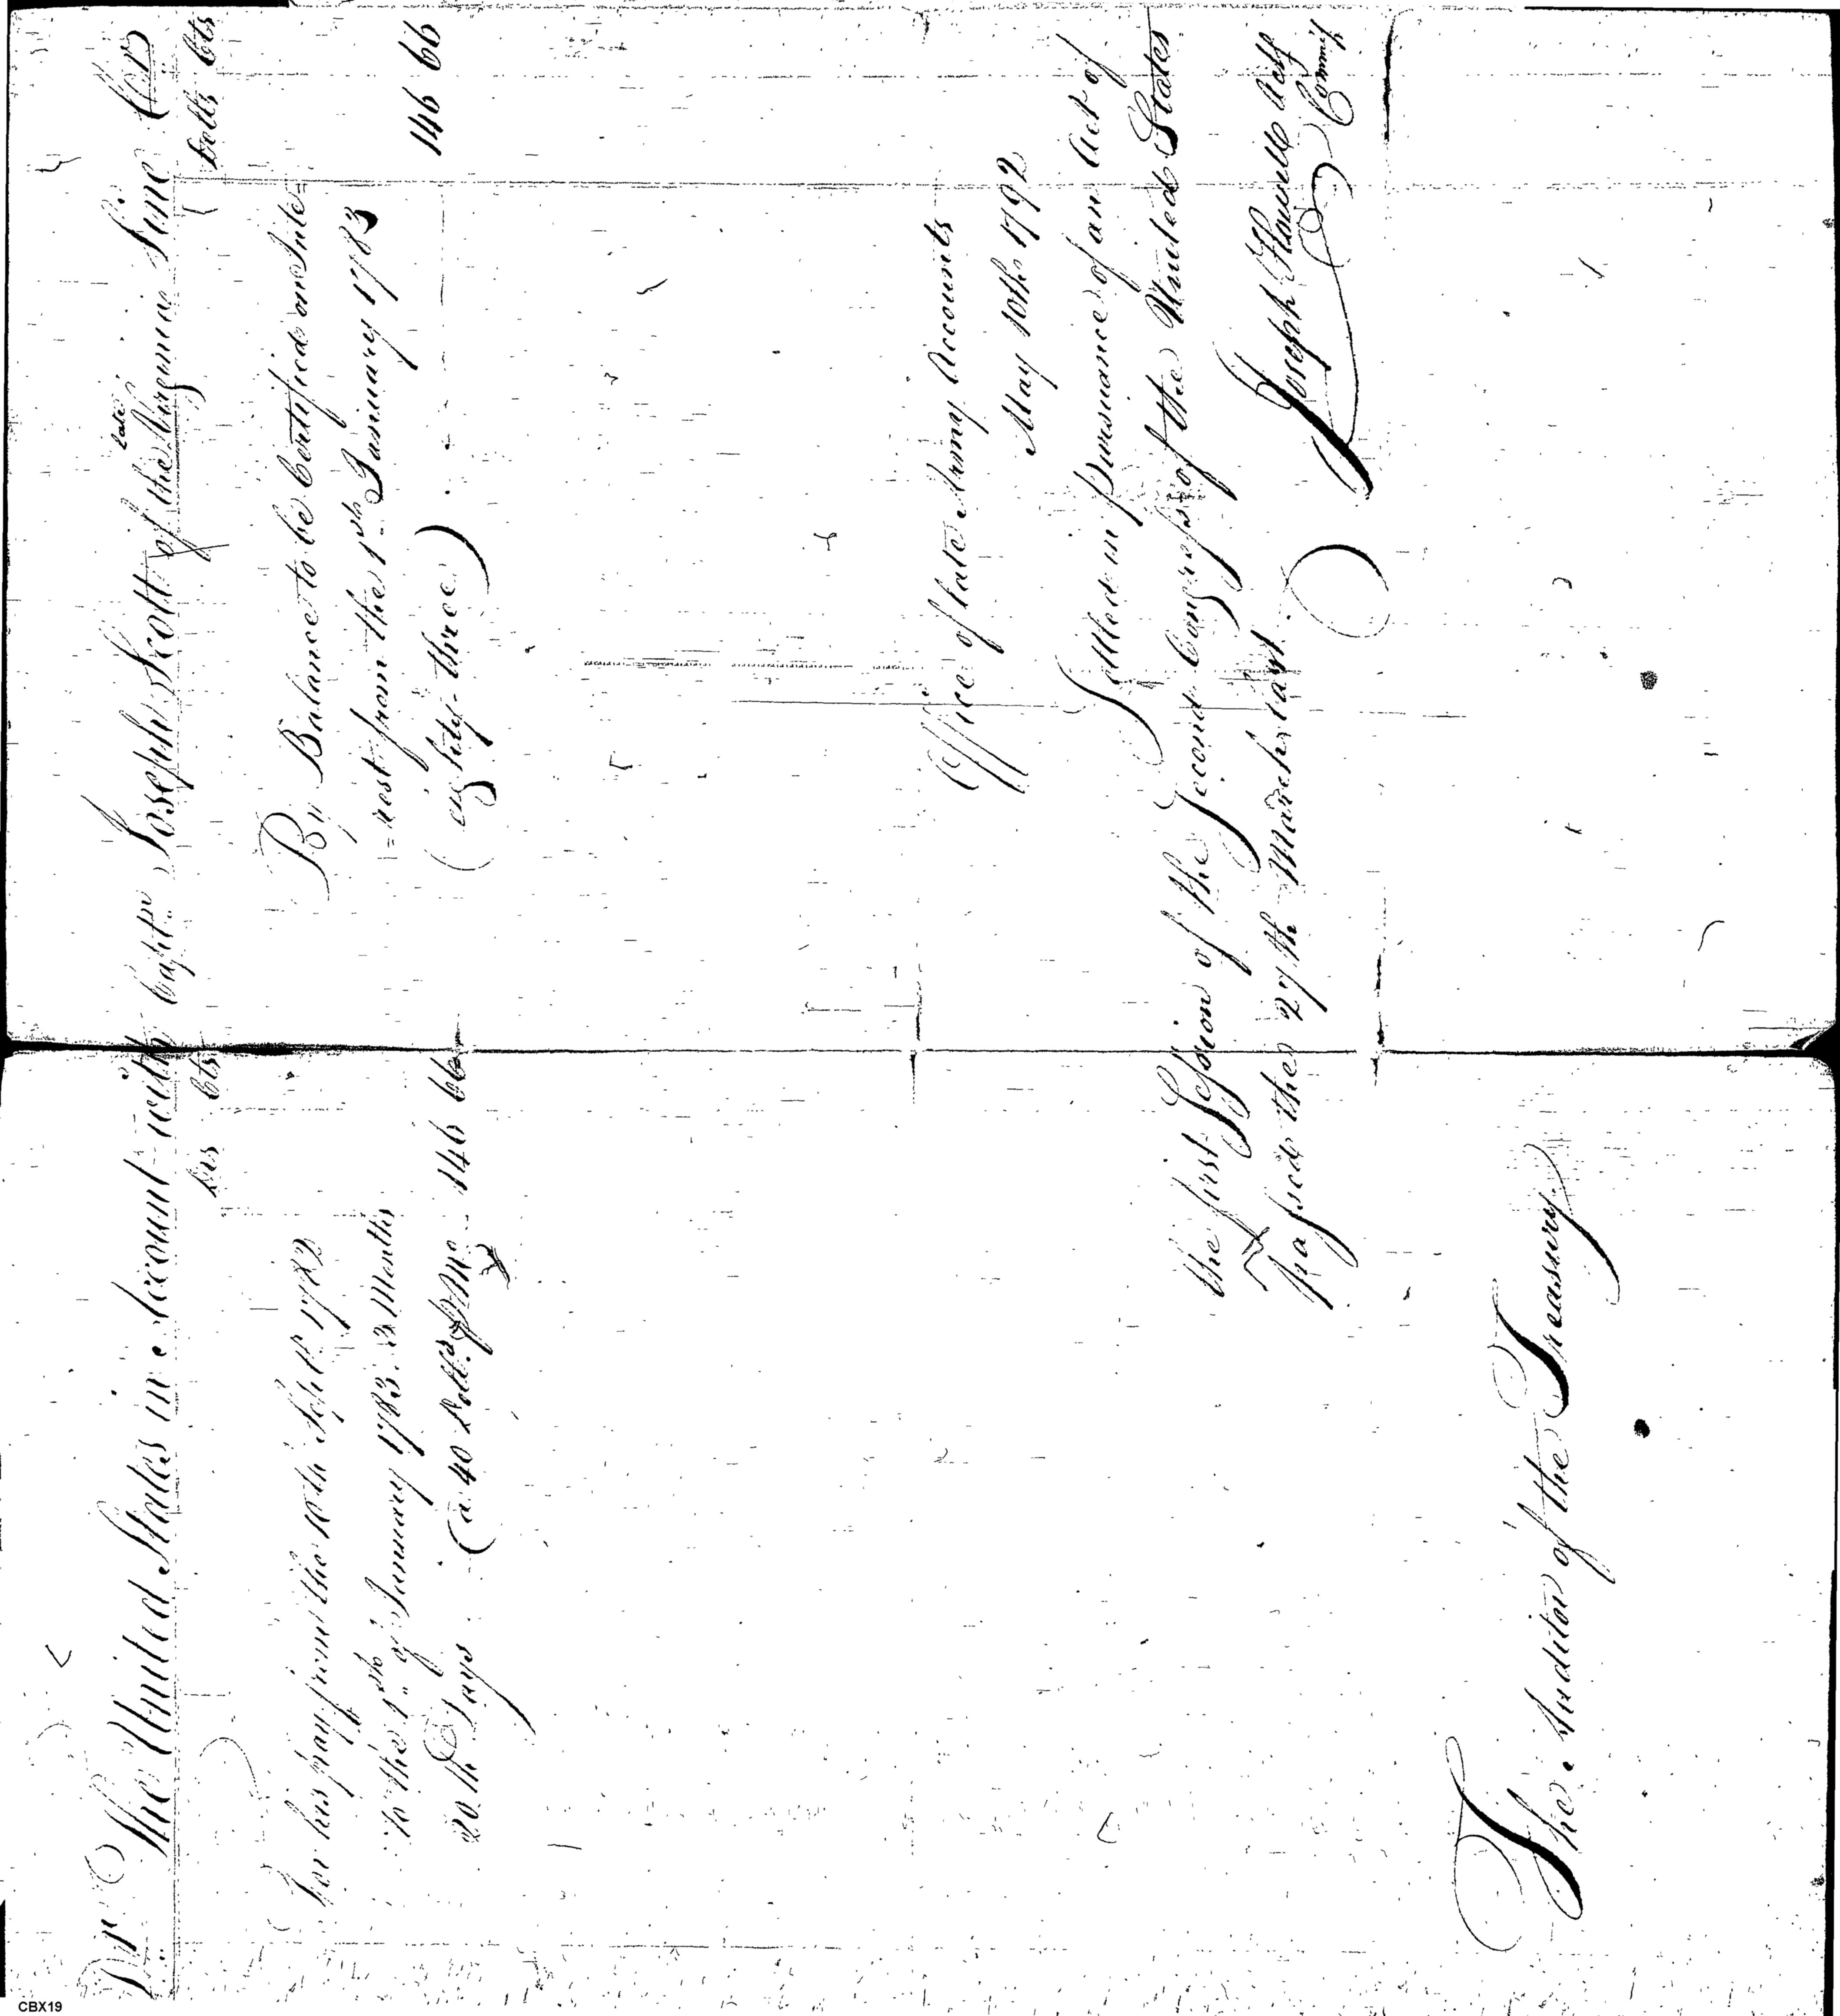 Dr The United States in Account with Captn Joseph Scott of the late Virginia Line Cr
Drs Cts
For his pay from the 10th Septr 1782
to the 1st of January 1783. 3 Months
20 th Days (a 40 Dolls p Mo. 146 66
Dolls Cts
By Balance to be Certified on Inte=
=rest from the 1st January 1783
(eighty-three) 146 66
Office of late Army Accounts
May 10th 1792
Settled in pursuance of an Act of
the first Session of the Second Congress of the United States
passed the 27th March last.
Joseph Howell Actg
Commisr
The Auditor of the Treasury
CBX19